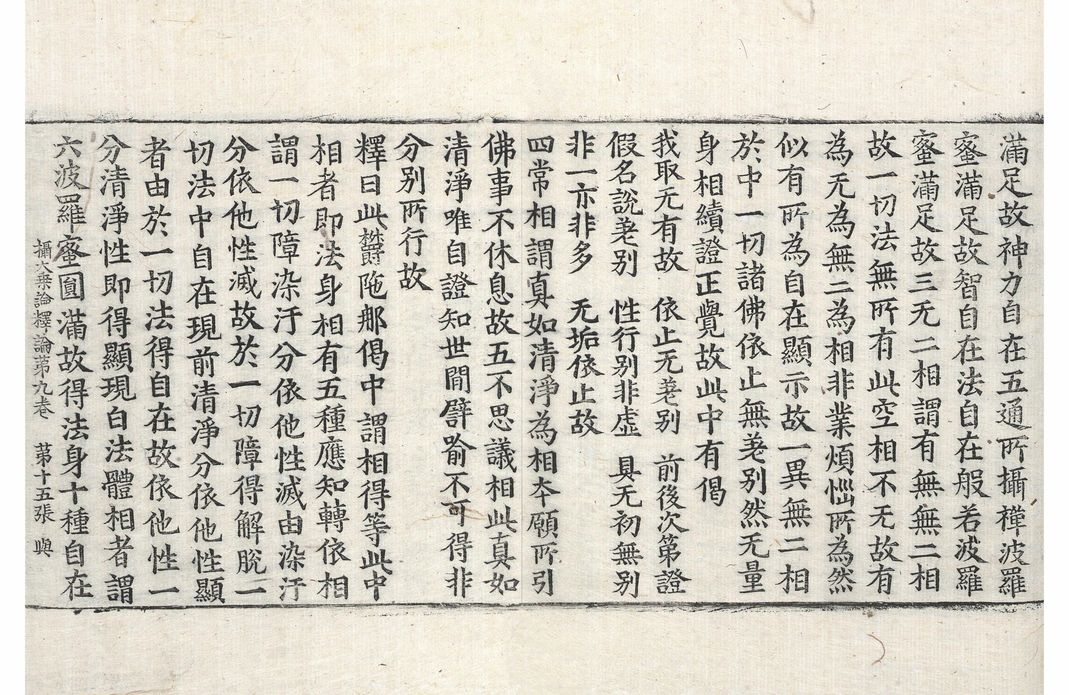 滿足故神力自在五通所攝禪波羅
蜜滿足故智自在法自在般若波羅
蜜滿足故三无二相謂有無無二相
故一切法無所有此空相不无故有
為无為無二為相非業煩惱所為然
似有所為自在顯示故一異無二相
於中一切諸佛依止無差别然无量
身相續證正覺故此中有偈
我取无有故　依止无差别　前後次第證
假名說差别　性行别非虛　具无初無别
非一亦非多　无垢依止故
四常相謂真如清淨為相本願所引
佛事不休息故五不思議相此真如
清淨唯自證知世間譬喻不可得非
分别所行故
釋曰此欝陁那偈中謂相得等此中
相者即法身相有五種應知轉依相
謂一切障染汙分依他性滅由染汙
分依他性滅故於一切障得解脫一
切法中自在現前清淨分依他性顯
者由於一切法得自在故依他性一
分清淨性即得顯現白法體相者謂
六波羅蜜圓滿故得法身十種自在
攝大乗論釋論第九卷　第十五張　與